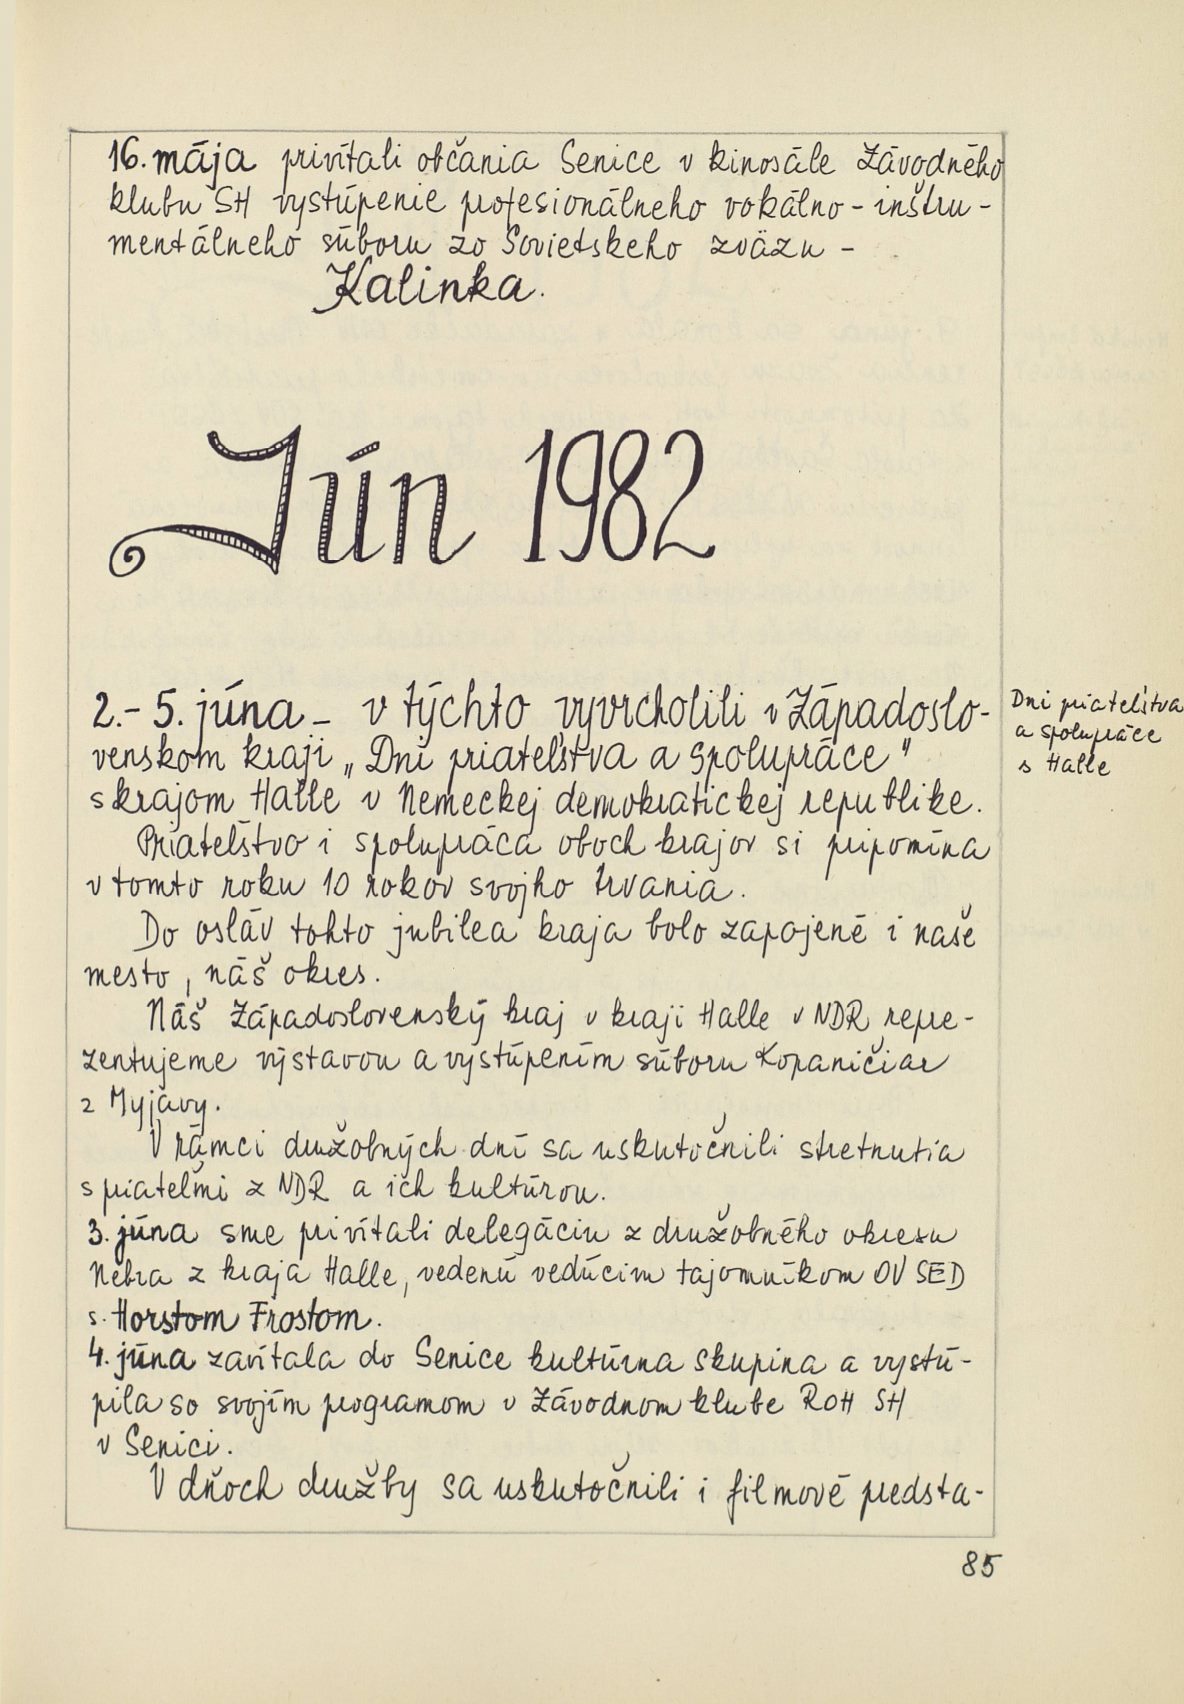 16. mája privítali občania Senice v kinosále Závodného
klubu SH vystúpenie profesionálneho vokálno - inštru -
mentálneho súboru zo Sovietskeho zväzu -
Kalinka.
Jún 1982
2.- 5. júna - v týchto vyvrcholili v Západoslo-
venskom kraji „Dni priateľstva a spolupráce"
s krajom Halle v Nemeckej demokratickej republike.
Priateľstvo i spolupráca oboch krajov si pripomína
v tomto roku 10 rokov svojho trvania.
Do osláv tohto jubilea kraja bolo zapojené i naše
mesto, náš okres.
Náš Západoslovenský kraj v kraji Halle v NDR repre-
zentujeme výstavou a vystúpením súboru Kopaničiar
z Myjavy.
V rámci družobných dní sa uskutočnili stretnutia
s priateľmi z NDR a ich kultúrou.
3. júna sme privítali delegáciu z družobného okresu
Nebra z kraja Halle, vedenú vedúcim tajomníkom OV SED
s. Horstom Frostom.
4. júna zavítala do Senice kultúrna skupina a vystú-
pila so svojím programom v Závodnom klube ROH SH
v Senici.
V dňoch družby sa uskutočnili i filmové predsta-
Dni priateľstva
a spolupráce
s Halle
85